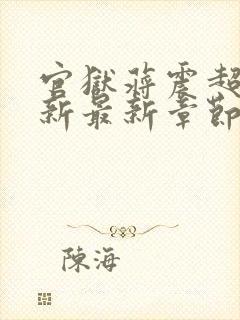 官獄蔣震超
新最新章節
陳海